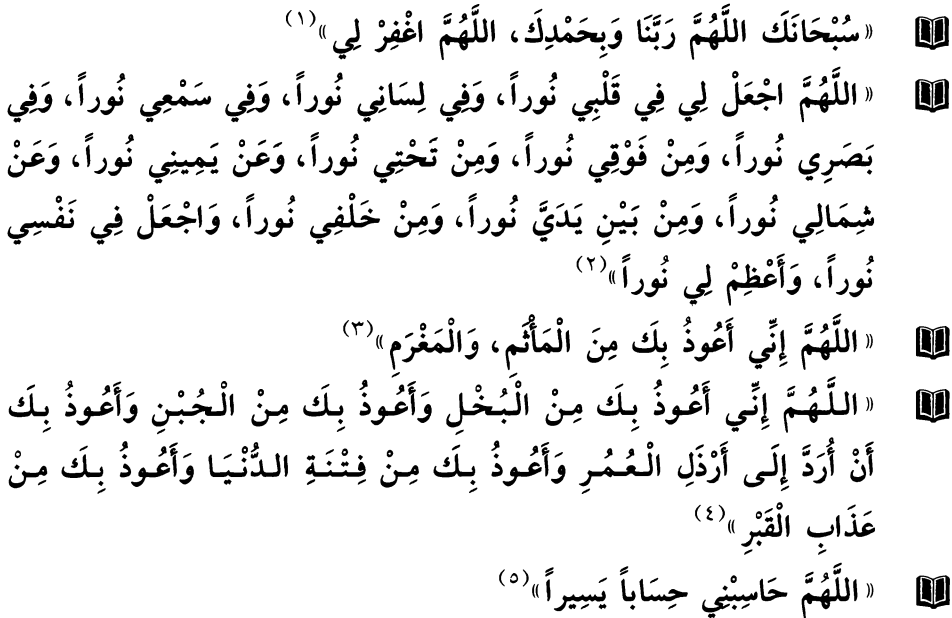 «سُبْحَانَكَ اللَّهُمَّ رَبَّنَا وَبِحَمْدِكَ، اللَّهُمَّ اغْفِرْ لِي»(١)
«اللَّهُمَّ اجْعَلْ لِي فِي قَلْبِي نُوراً، وَفِي لِسَانِي نُوراً، وَفِي سَمْعِي نُوراً، وَفِي
بَصَرِي نُوراً، وَمِنْ فَوْقِي نُوراً، وَمِنْ تَحْتِي نُوراً، وَعَنْ يَمِينِي نُوراً، وَعَنْ
شِمَالِي نُوراً، وَمِنْ بَيْنِ يَدَيَّ نُوراً، وَمِنْ خَلْفِي نُوراً، وَاجْعَلْ فِي نَفْسِي
نُوراً، وَأَعْظِمْ لِي نُوراً»(٢)
«اللَّهُمَّ إِنِّي أَعُوذُ بِكَ مِنَ الْمَأْثَمِ، وَالْمَغْرَمِ»(٣)
«اللَّهُمَّ إِنِّي أَعُوذُ بِكَ مِنْ الْبُخْلِ وَأَعُوذُ بِكَ مِنْ الْجُبْنِ وَأَعُوذُ بِكَ
أَنْ أُرَدَّ إِلَى أَرْذَلِ الْعُمُرِ وَأَعُوذُ بِكَ مِنْ فِتْنَةِ الدُّنْيَا وَأَعُوذُ بِكَ مِنْ
عَذَابِ الْقَبْرِ»(٤)
«اللَّهُمَّ حَاسِبْنِي حِسَاباً يَسِيراً»(٥)